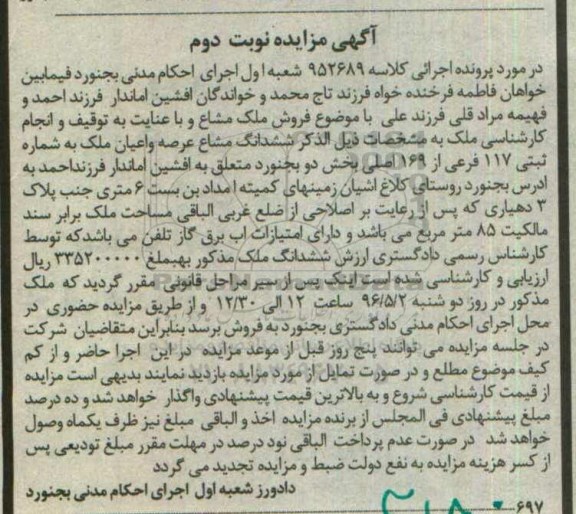 آگهی مزایده نوبت دوم
در مورد پرونده اجرائی کلاسه ۹۵۲۶۸۹ شعبه اول اجرای احکام مدنی بجنورد فیمابین
خواهان فاطمه فرخنده خواه فرزند تاج محمد و خواندگان افشین اماندار فرزند احمد و
فهیمه مراد قلی فرزند علی با موضوع فروش ملک مشاع و با عنایت به توقیف و انجام
کارشناسی ملک به مشخصات ذیل الذکر ششدانگ مشاع عرصه واعیان ملک به شماره
ثبتی ۱۱۷ فرعی از ۱۶۹ اصلی بخش دو بجنورد متعلق به افشین اماندار فرزنداحمد به
ادرس بجنورد روستای کلاغ اشیان زمینهای کمیته امداد بن بست ۶ متری جنب پلاک
۳ دهیاری که پس از رعایت بر اصلاحی از ضلع غربی الباقی مساحت ملک برابر سند
مالکیت ۸۵ متر مربع می باشد و دارای امتیازات اب برق گاز تلفن می باشدکه توسط
کارشناس رسمی دادگستری ارزش ششدانگ ملک مذکور بهمبلغ ۳۳۵۲۰۰۰۰۰ ریال
ارزیابی و کارشناسی شده است اینک پس از سیر مراحل قانونی مقرر گردید که ملک
مذکور در روز دو شنبه ۹۶/۵/۲ ساعت ۱۲ الی ۱۲/۳۰ و از طریق مزایده حضوری در
محل اجرای احکام مدنی دادگستری بجنورد به فروش برسد بنابراین متقاضیان شرکت
در جلسه مزایده می توانند پنج روز قبل از موعد مزایده در این اجرا حاضر و از کم
کیف موضوع مطلع و در صورت تمایل از مورد مزایده بازدید نمایند بدیهی است مزایده
از قیمت کارشناسی شروع و به بالاترین قیمت پیشنهادی واگذار خواهد شد و ده درصد
مبلغ پیشنهادی فی المجلس از برنده مزایده اخذ و الباقی مبلغ نیز ظرف یکماه وصول
خواهد شد در صورت عدم پرداخت الباقی نود درصد در مهلت مقرر مبلغ تودیعی پس
از کسر هزینه مزایده به نفع دولت ضبط و مزایده تجدید می گردد
دادورز شعبه اول اجرای احکام مدنی بجنورد
۶۹۷